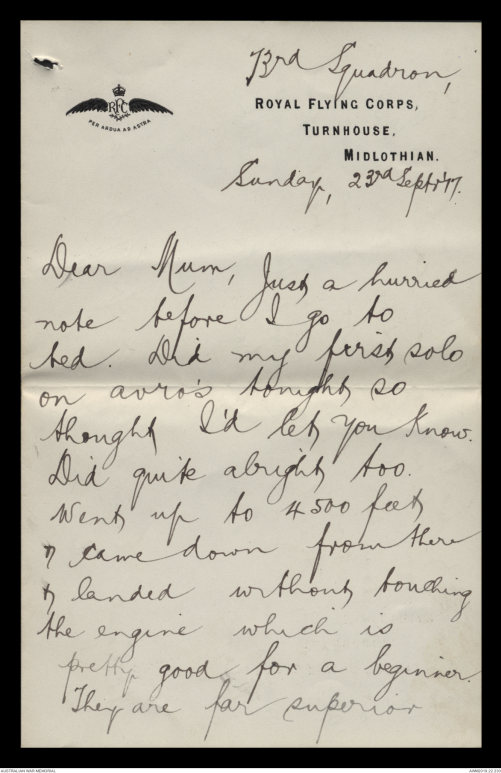 73rd Squadron,
RFC
PER ARDUA AD ASTRA
ROYAL FLYING CORPS,
TURNHOUSE,
MIDLOTHIAN.
Sunday, 23rd Sept '17.
Dear Mum, Just a hurried
note before I go to
bed. Did my first solo
on avro's tonight so
thought I'd let you know.
Did quite alright too.
Went up to 4500 feet
& came down from there
& landed without touching
the engine which is
pretty good for a beginner.
They are far superior
AUSTRALIAN WAR MEMORIAL